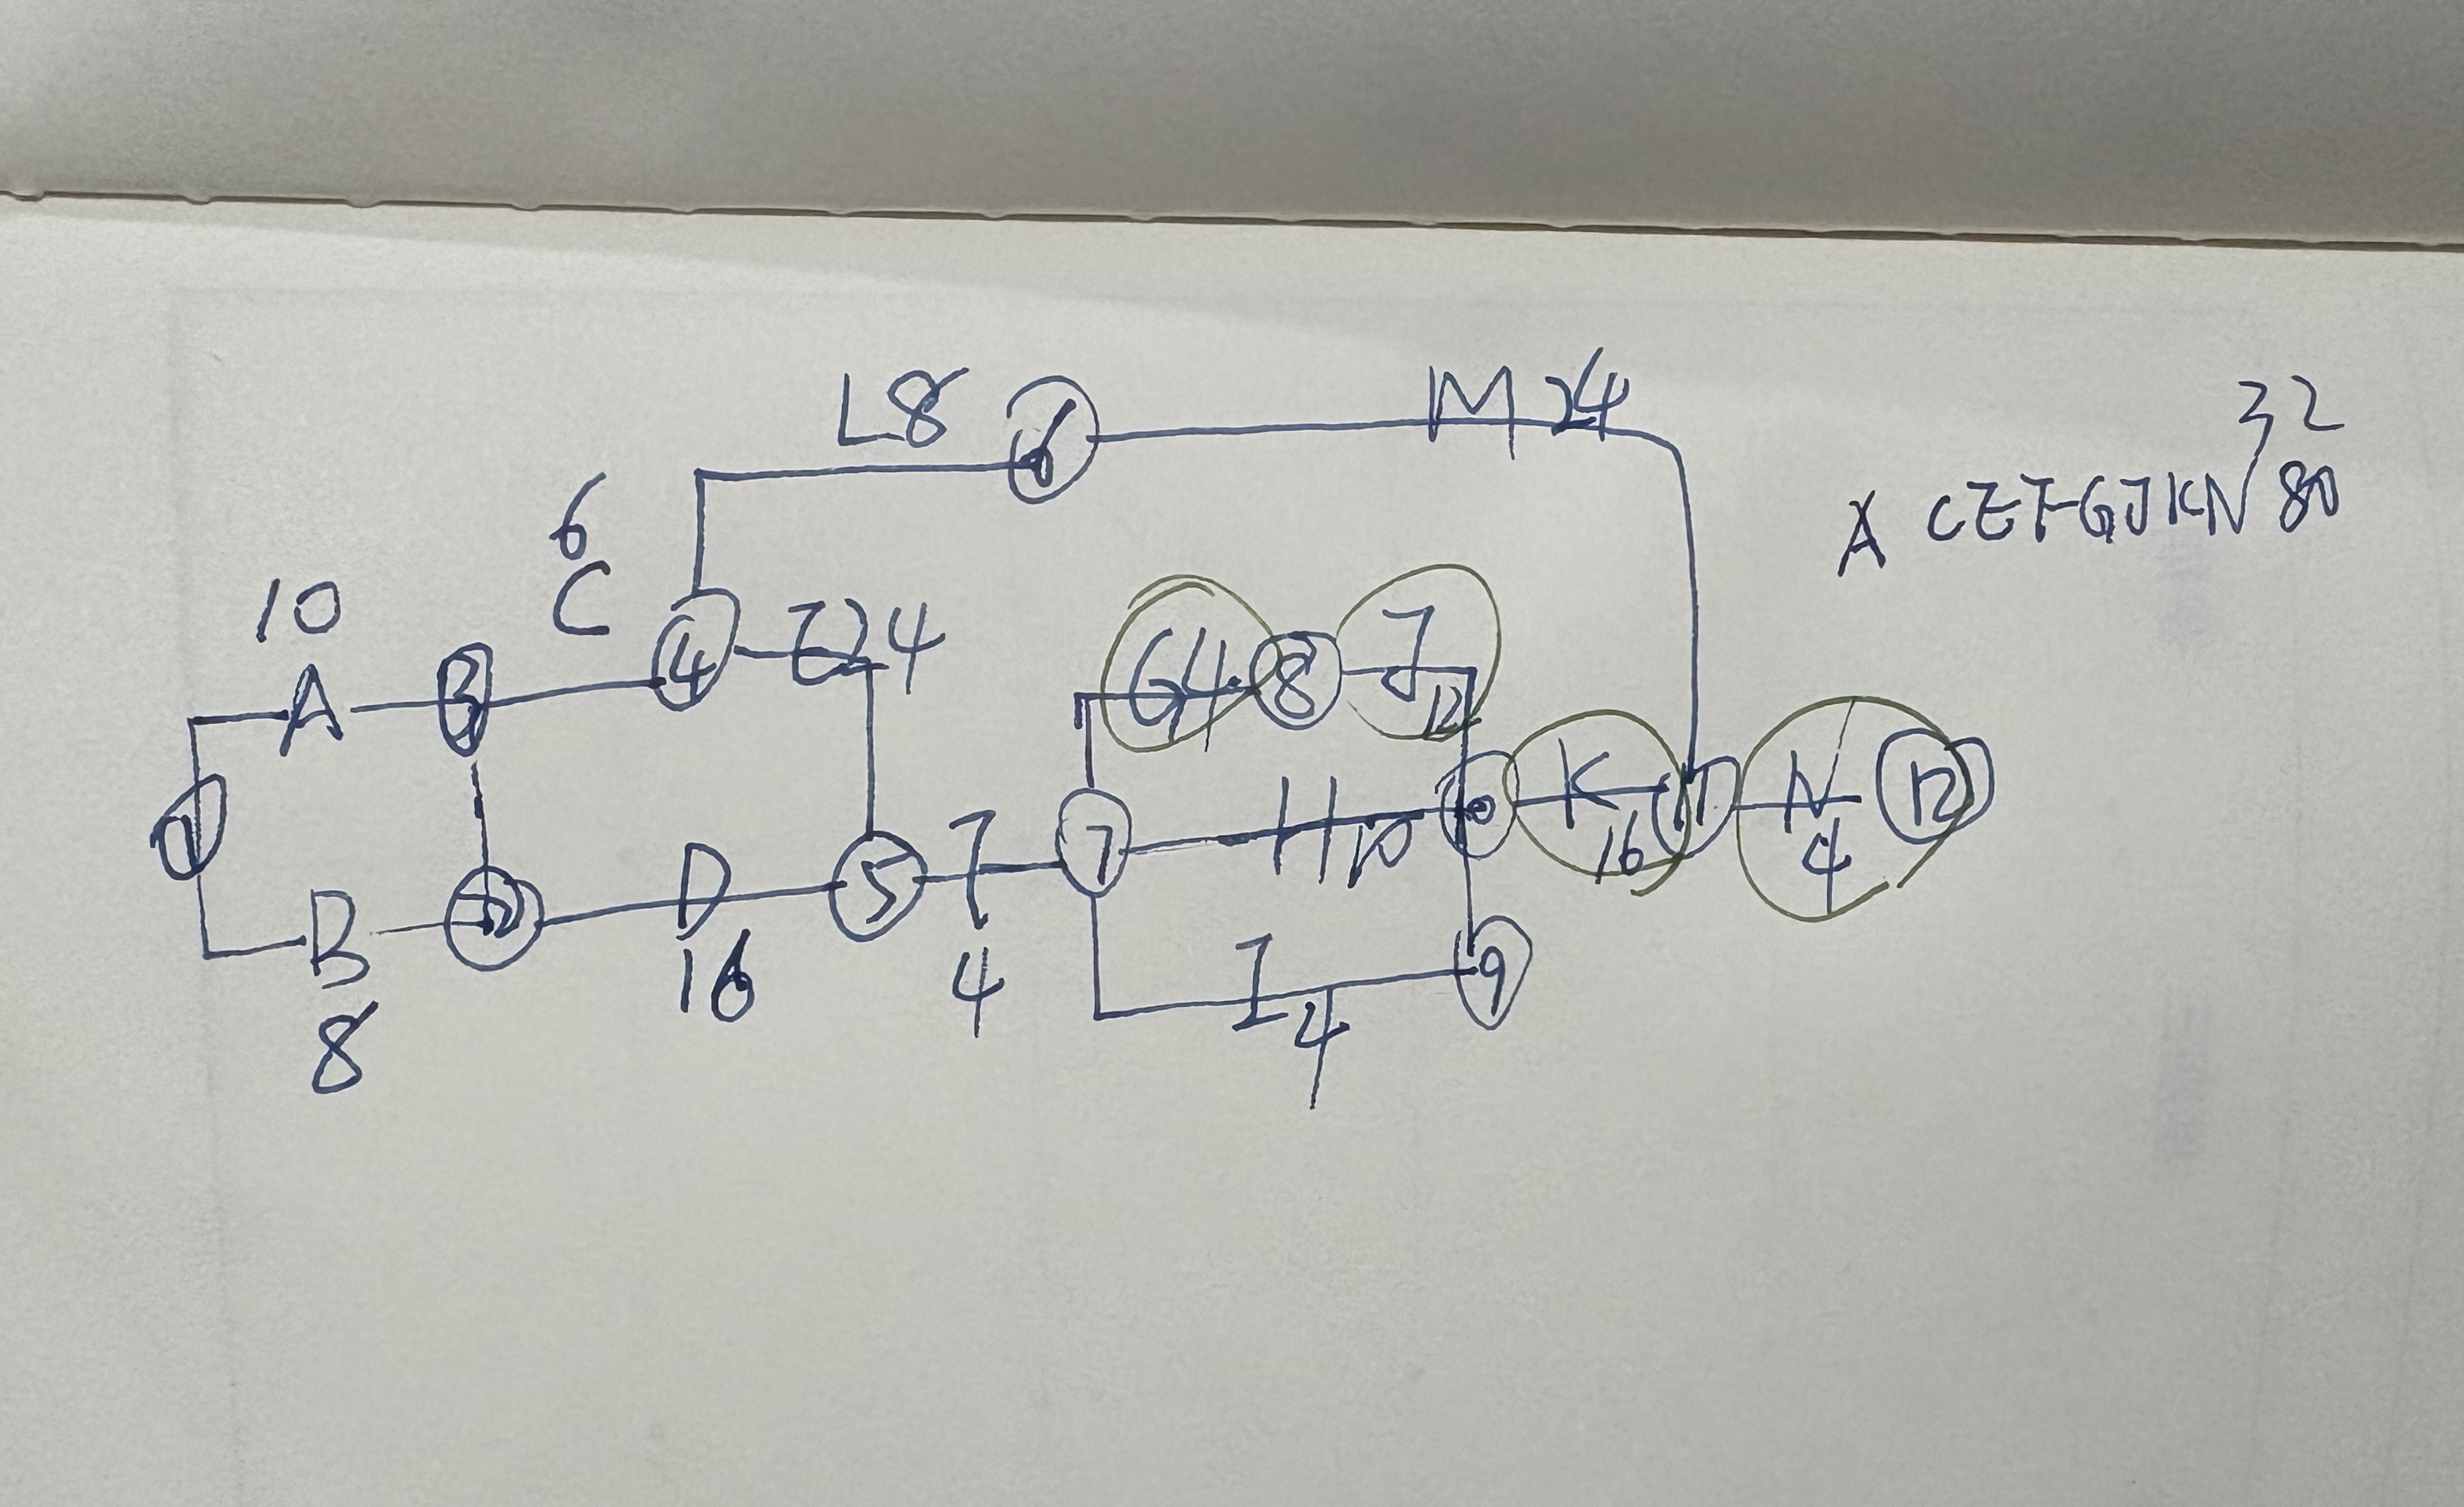 L8
6
M 24
32
A CEFGJKN 80
6
C
10
A
3
4
E 24
G4
8
J
12
1
B
8
2
D
16
5
F
4
7
H 10
10
K
16
11
N
4
12
I
4
9